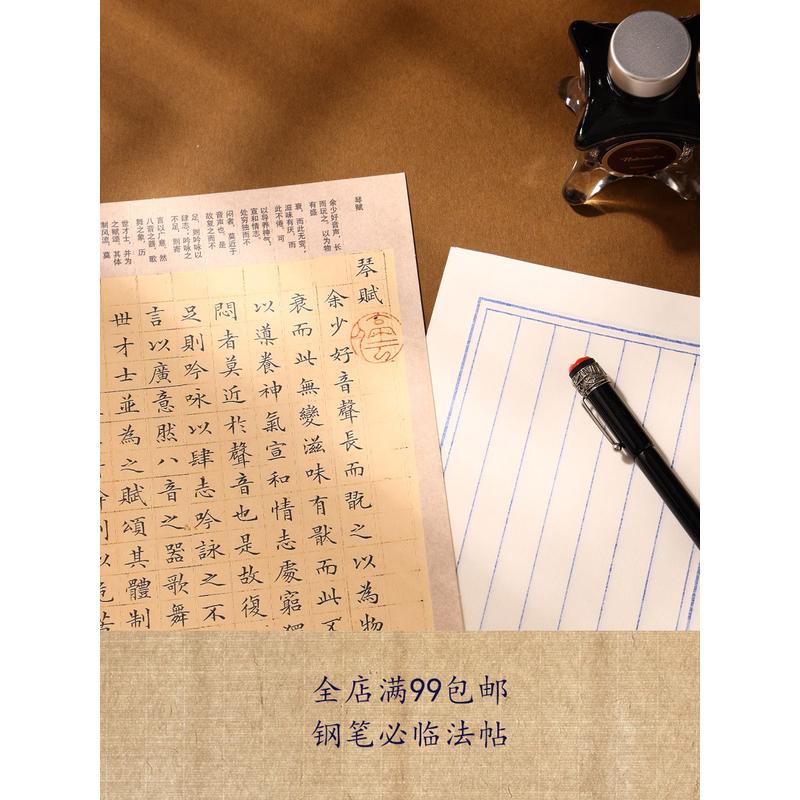 琴赋
余少好音声，长
而玩之。以为物
有盛
衰，而此无变，
滋味有厌，而
此不倦。可
以导养神气，
宣和情志
处穷独而不
闷者，莫近于
音声也。是
故复之而不
足，则吟咏以
肆志；吟咏之
不足，则寄
言以广意。然
八音之器，歌
舞之象，历
世才士，并为
之赋颂，其体
制风流，莫
琴賦
余少好音聲長而翫之以為物
衰而此無變滋味有猒而此不
以導養神氣宣和情志處窮獨
悶者莫近於聲音也是故復
足則吟咏以肆志吟詠之不
言以廣意然八音之器歌舞
世才士並為之賦頌其體制
全店满99包邮
钢笔必临法帖